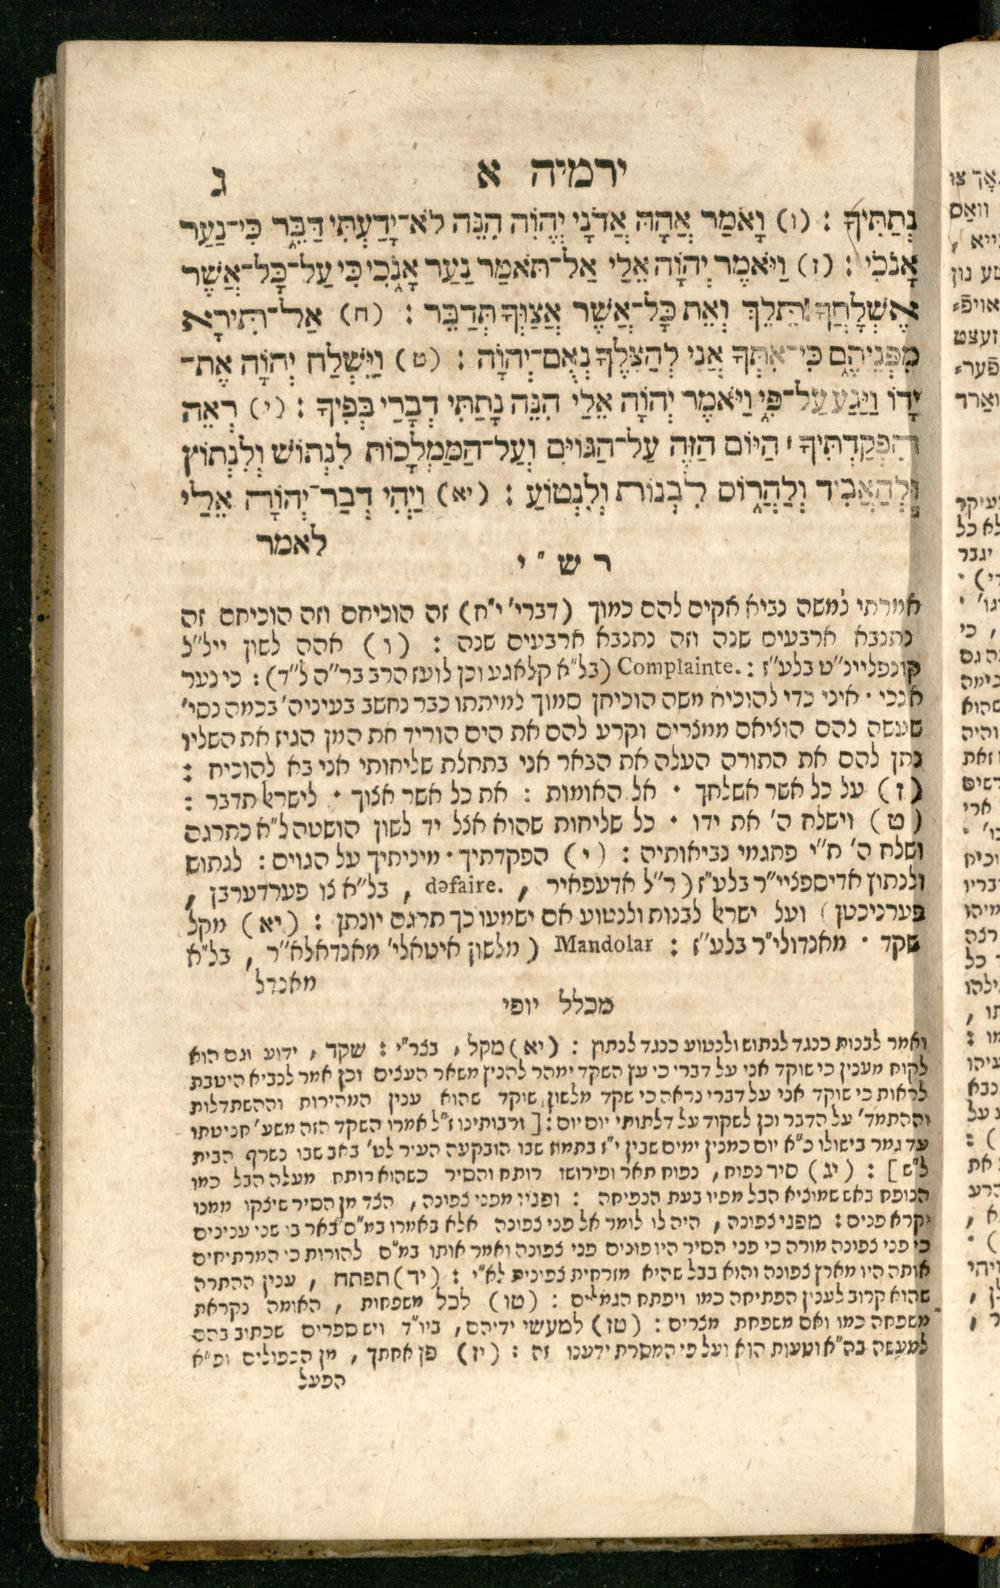 ירמיה א ג
נְתַתִּיךָ : (ו) וָאֹמַר אֲהָהּ אֲדֹנָי יֱהֹוִה הִנֵּה לֹא־יָדַעְתִּי דַּבֵּר כִּי־נַעַר
אָנֹכִי : (ז) וַיֹּאמֶר יְהֹוָה אֵלַי אַל־תֹּאמַר נַעַר אָנֹכִי כִּי עַל־כָּל־אֲשֶׁר
אֶשְׁלָחֲךָ תֵּלֵךְ וְאֵת כָּל־אֲשֶׁר אֲצַוְּךָ תְּדַבֵּר : (ח) אַל־תִּירָא
מִפְּנֵיהֶם כִּי־אִתְּךָ אֲנִי לְהַצִּלֶךָ נְאֻם־יְהֹוָה : (ט) וַיִּשְׁלַח יְהֹוָה אֶת־
יָדוֹ וַיַּגַּע עַל־פִּי וַיֹּאמֶר יְהֹוָה אֵלַי הִנֵּה נָתַתִּי דְבָרַי בְּפִיךָ : (י) רְאֵה
הִפְקַדְתִּיךָ ׀ הַיּוֹם הַזֶּה עַל־הַגּוֹיִם וְעַל־הַמַּמְלָכוֹת לִנְתוֹשׁ וְלִנְתוֹץ
וּלְהַאֲבִיד וְלַהֲרוֹס לִבְנוֹת וְלִנְטוֹעַ : (יא) וַיְהִי דְבַר־יְהֹוָה אֵלַי
לאמר
ר ש " י
אמרתי למשה נביא אקים להם כמוך (דברי' י"ח) זה הוכיחם וזה הוכיחם זה
נתנבא ארבעים שנה וזה נתנבא ארבעים שנה : (ו) אהה לשון ייל"ל
קונפליינ"ט בלע"ז : Complainte. (בל"א קלאגע וכן לועז הרב בר"ה ל"ד) : כי נער
אנכי · איני כדי להוכיח משה הוכיחן סמוך למיתתו כבר נחשב בעיניה' בכמה נסי'
שעשה להם הוציאם ממצרים וקרע להם את הים הוריד את המן הגיז את השליו
נתן להם את התורה העלה את הבאר אני בתחלת שליחותי אני בא להוכיח :
(ז) על כל אשר אשלחך · אל האומות : את כל אשר אצוך · לישראל תדבר :
(ט) וישלח ה' את ידו · כל שליחות שהוא אצל יד לשון הושטה ל"א כתרגומו
ושלח ה' ית"י פתגמי נביאותיה : (י) הפקדתיך · מיניתיך על הגוים : לנתוש
ולנתוץ אדיספציי"ר בלע"ז (ר"ל אדעפאיר , défaire. , בל"א צו פערדערבן ,
פערניכטן) ועל ישראל לבנות ולנטוע אם ישמעו כך תרגם יונתן : (יא) מקל
שקד · מאנדולי"ר בלע"ז : Mandolar (מלשון איטאלי' מאנדאלא"ר , בל"א
מאנדל
מכלל יופי
ואמר לבנות כנגד לנתוש ולנטוע כנגד לנתוץ : (יא) מקל , בצר"י : שקד , ידוע וגם הוא
לקוח מענין כי שוקד אני על דברי כי עץ השקד ימהר להנץ משאר העצים וכן אמר לנביא היטבת
לראות כי שוקד אני על דברי נראה כי שקד מלשון שוקד שהוא ענין המהירות וההשתדלות
וההתמד' על הדבר וכן לשקוד על דלתותי יום יום : [ורבותינו ז"ל אמרו השקד הזה משע' חניטתו
עד גמר בישולו כ"א יום כמנין ימים שבין י"ז בתמוז שבו הובקעה העיר לט' באב שבו נשרף הבית
ל"ש] : (יג) סיר נפוח , נפוח תאר ופירושו רותח והסיר כשהוא רותח מעלה הבל כמו
הנופח באש שמוציא הבל מפיו בעת הנפיחה : ופניו מפני צפונה , הצד מן הסיר שיצקו ממנו
יקרא פנים : מפני צפונה , היה לו לומר אל פני צפונה אלא באמרו במ"ם באר בו שני ענינים
כי פני צפונה מורה כי פני הסיר היו פונים פני צפונה ואמר אותו במ"ם להורות כי המרתיחים
אותה היו מארץ צפונה והוא בבל שהיא מזרחית צפונית לא"י : (יד) תפתח , ענין ההתרה
שהוא קרוב לענין הפתיחה כמו ויפתח הגמלים : (טו) לכל משפחות , האומה נקראת
משפחה כמו ואם משפחת מצרים : (טז) למעשי ידיהם , ביו"ד ויש ספרים שכתוב בהם
למעשה בה"א וטעות הוא ועל פי המסרת ידענו זה : (יז) פן אחתך , מן הכפולים ופ"א
הפעל